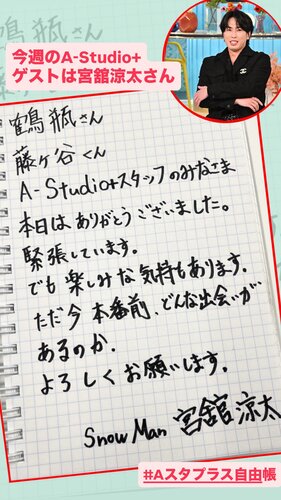 今週のA-Studio+
ゲストは宮舘涼太さん
鶴瓶さん
藤ヶ谷くん
A-Studio+スタッフのみなさま
本日はありがとうございました。
緊張しています。
でも楽しみな気持もあります。
ただ今本番前、どんな出会いが
あるのか。
よろしくお願いします。
Snow Man 宮舘涼太
#Aスタプラス自由帳